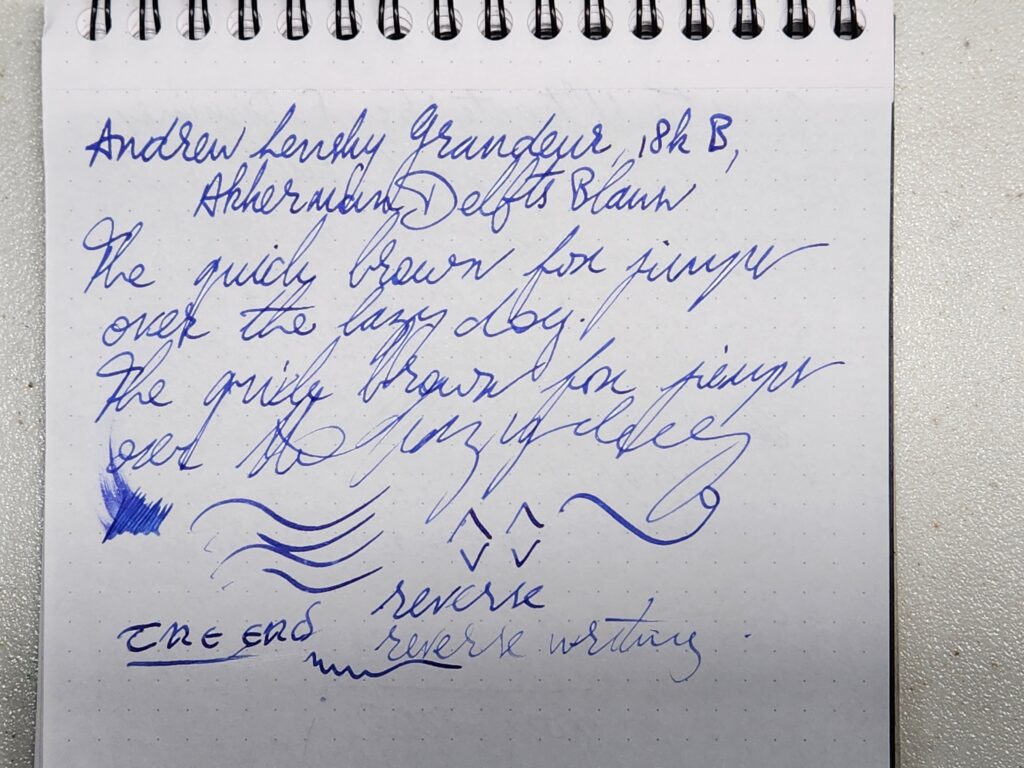 Andrew Lensky Grandeur, 18k B,
Akkerman Delfts Blauw
The quick brown fox jumps
over the lazy dog.
The quick brown fox jumps
over the lazy
reverse
THE END
reverse writing.